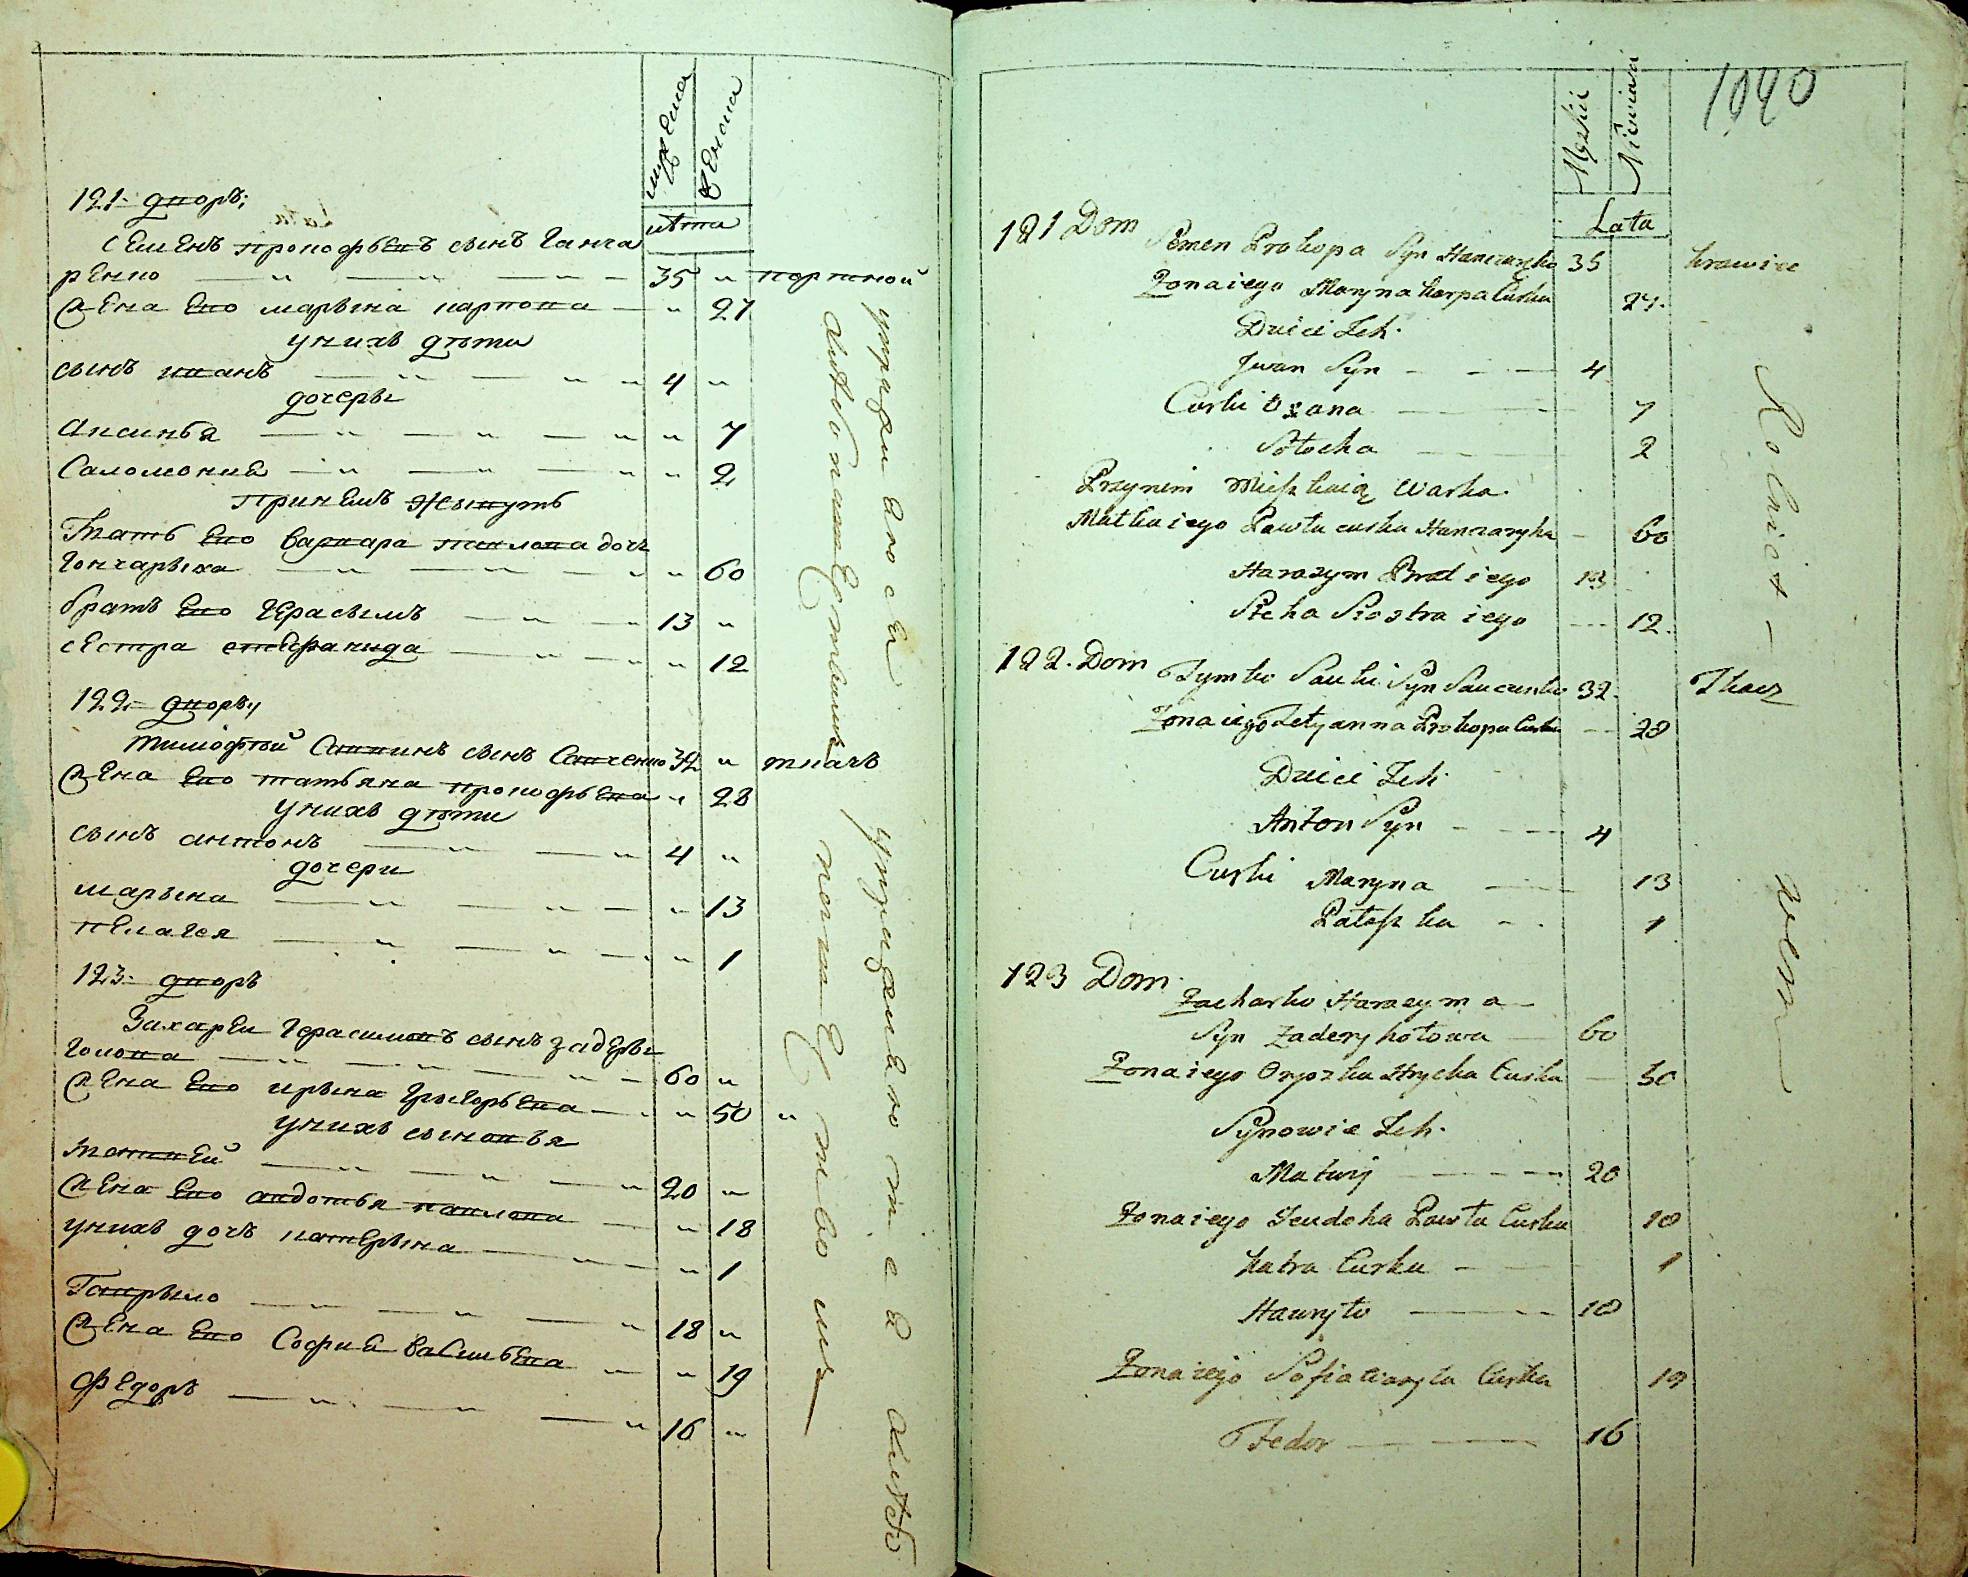 мужеска
женска
лѣта
121- дворъ;
Семенъ прокофьевъ сынъ Ганча
ренко 35 " портной
жена Ево марьина карпова " 27
унихъ дѣти
сынъ иванъ 4 "
дочеры
Аксинья " 7
Саломония " 2
принемъ живутъ
Мать Ево варвара павлова дочь
Гончарыха " 60
братъ Ево Герасымъ 13 "
сестра степанида " 12
122- дворъ,,
тимофѣй Саввинъ сынъ Савченко 32 " ткачъ
жена Ево татьяна прокофьева " 28
унихъ дѣти
сынъ антонъ 4 "
дочери
марьина " 13
пелагея " 1
123- дворъ
Захарей Герасимовъ сынъ задеры
голова 60 "
жена Ево ирына Григорьева " 50 "
унихъ сыновья
матвей 20 "
жена Ево авдотья павлова " 18
унихъ дочь катерына " 1
Гаврыло 18 "
жена Ево София васильева " 19
Федоръ 16 "
1090
Męskii
Niewiasa
Lata
121 Dom
Semen Prokopa Syn Hanczarzko 35 krawiec
Zona iego Maryna karpa Curka 27.
Dzieci Ich.
Jwan Syn 4
Curki Oxana 7
Sołocha 2
Przynim Mieszkaią Warka
Matka iego Pawła curka Hanczaryha 60
Harazym Brat iego 13
Steha Siostra iego 12.
122. Dom
Tymko Sawki Syn Sauczenko 32. Tkacz
Zona iego Tetyanna Prokopa Curka 28
Dzieci Ich.
Anton Syn 4
Curki Maryna 13
Pałaszka 1
123 Dom
Zacharko Harazyma
Syn Zaderyhołowa 60
Zona iego Oryszka Hrycka Curka 50
Synowie Ich.
Matwij 20
Zona iego Jeudoha Pawła Curka 18
Katra Curka 1
Hawryło 18
Zona iego Sofia Wasyla Curka 19
Fedor 16
Rolnictwem